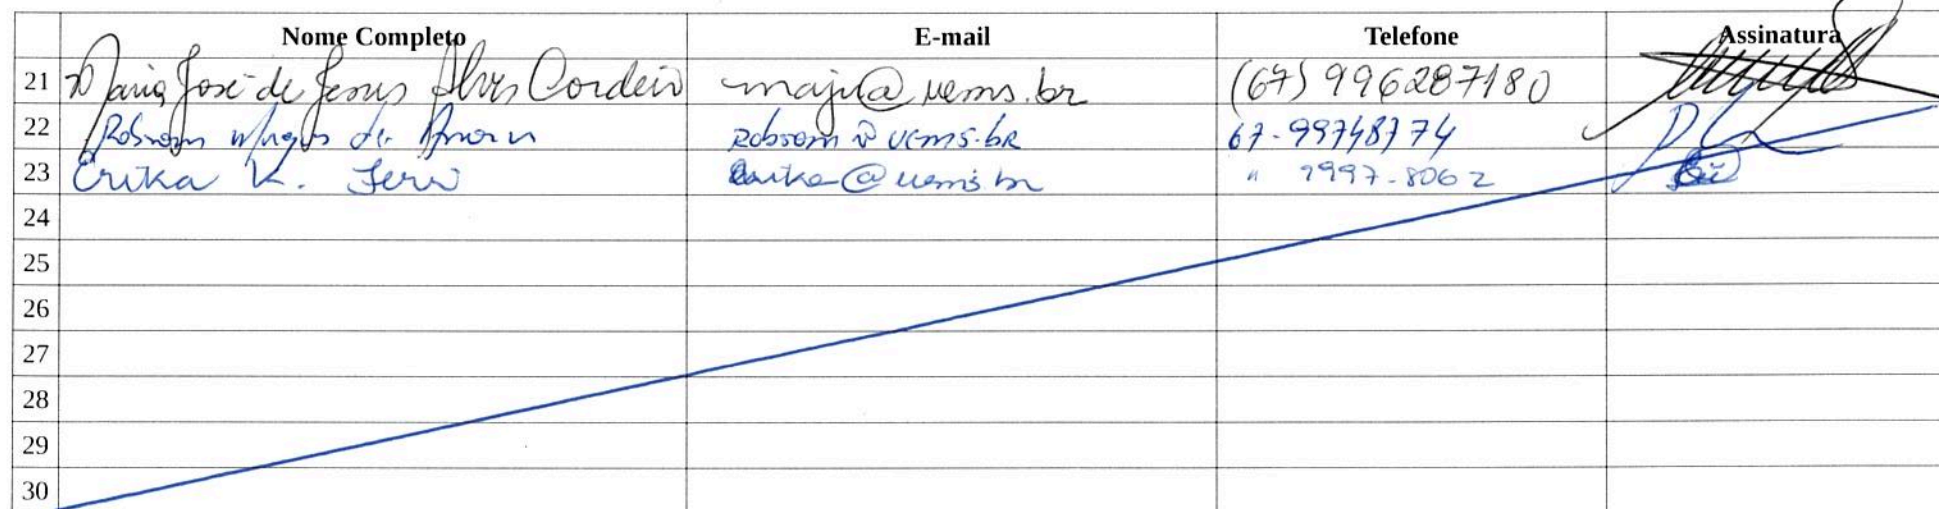 Nome Completo E-mail Telefone Assinatura
21 Maria José de Jesus Alves Cordeiro maju@uems.br (67) 996287180
22 Robsom de Amorim robsom@uems.br 67-99748774
23 Erika K. @uems.br " 9997-8062
24
25
26
27
28
29
30